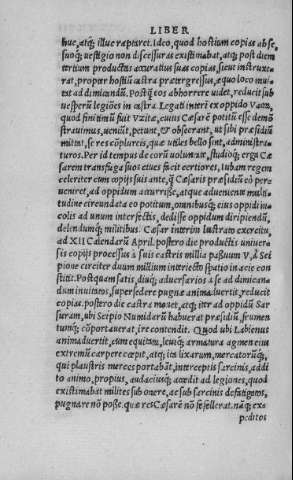 LIBER
huc, atq; illuc raperet. Ideo, quod hostium copias abse,
suoq; uestigio non discessuras existimabat, atq; post diem
tertium productis accuratius suas copias, sicut instruxe-
rat, propter hostiū castra prætergressus, æquo loco inui-
tat ad dimicandū. Postq̃ eos abhorrere uidet, reducit sub
uesperū legiões in castra. Legati interi ex oppido Vacca,
quod finitimū fuit Vzitæ, cuius Cæsarē potitū esse demō
strauimus, ueniūt, petunt, & obsecrant, ut sibi præsidiū
mittat, se res cōplureis, quæ utiles bello sint, administra-
turos. Per id tempus de eorū uoluntate, studioq; erga Cæ
sarem transfuga suos ciues facit certiores, Iubam regem
celeriter cum copijs suis ante, q̃ Cæsaris præsidiū eò per-
ueniret, ad oppidum accurrisse, atque aduenientē multi-
tudine circundata eo potitum, omnibusq; eius oppidi in-
colis ad unum interfectis, dedisse oppidum diripiendū,
delendumq; militibus. Cæsar interim lustrato exercitu,
ad XII Calendarū April. postero die productis uniuer-
sis copijs processus à suis castris millia passuum V, à Sci
pione circiter duum millium interiecto spatio in acie con
stitit. Postquam satis, diuq; aduersarios à se ad dimican-
dum inuitatos, supersedere pugnæ animaduertit, reducit
copias. postero die castra mouet, atq; iter ad oppidū Sar
suram, ubi Scipio Numidarū habuerat præsidiū, frumen
tumq; cōportauerat, ire contendit. Quod ubi Labienus
animaduertit, cum equitatu, leuiq; armatura agmen eius
extremū carpere cœpit, atq; ita lixarum, mercatorūq;,
qui plaustris merces portabāt, interceptis sarcinis, addi
to animo, propius, audaciusq; accedit ad legiones, quod
existimabat milites sub onere, ac sub sarcinis defatigatos,
pugnare nō posse. quæ res Cæsarē nō fefellerat. nāq; ex-
peditos